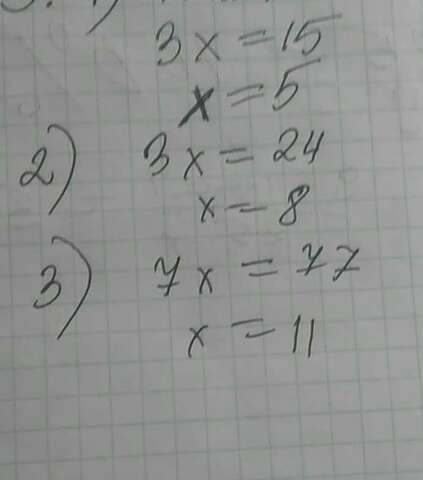 3x=15
x=5
2) 3x=24
x=8
3) 7x=77
x=11